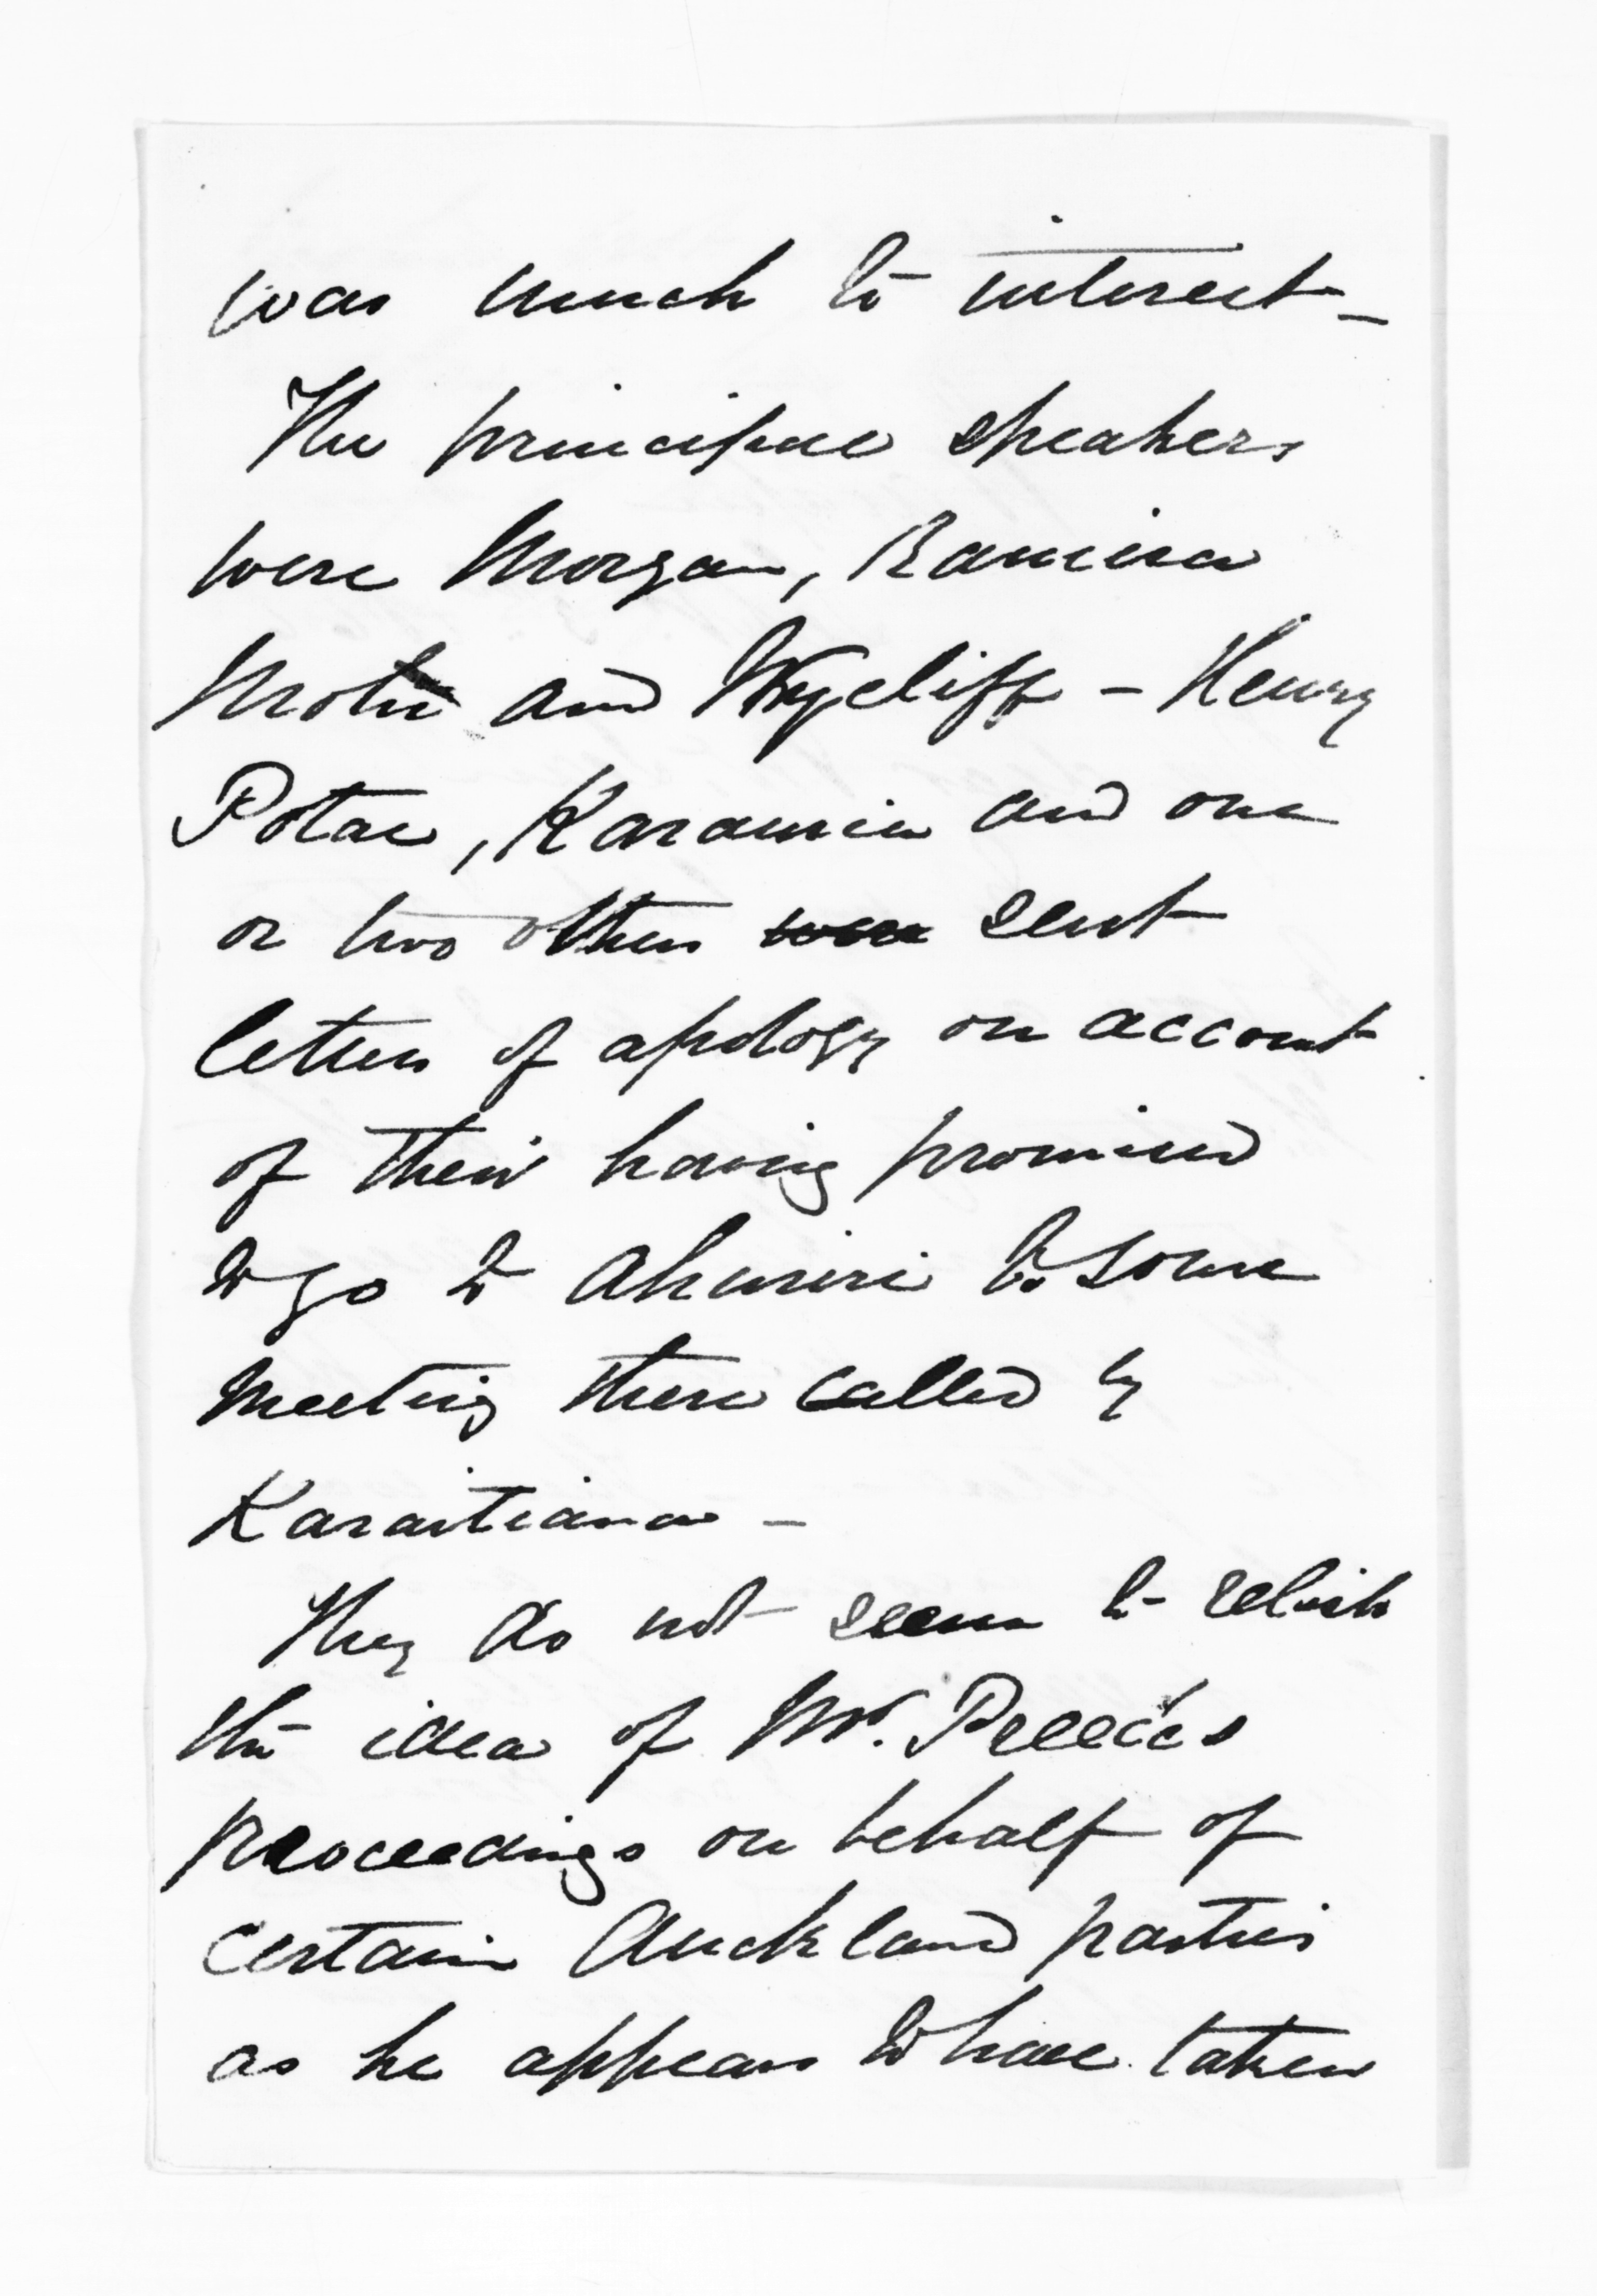 was much to interest –
The principal speakers
were Morgan, Ramira
Motu and Wycliff – Henry
Potae, Karauria and one
or two others were sent
letters of apology on account
of their having promised
to go to Ahuriri to some
meeting there called by
Karaitiana –
They do not seem to relish
the idea of Mr. Preece's
proceedings on behalf of
certain Auckland parties
as he appears to have taken